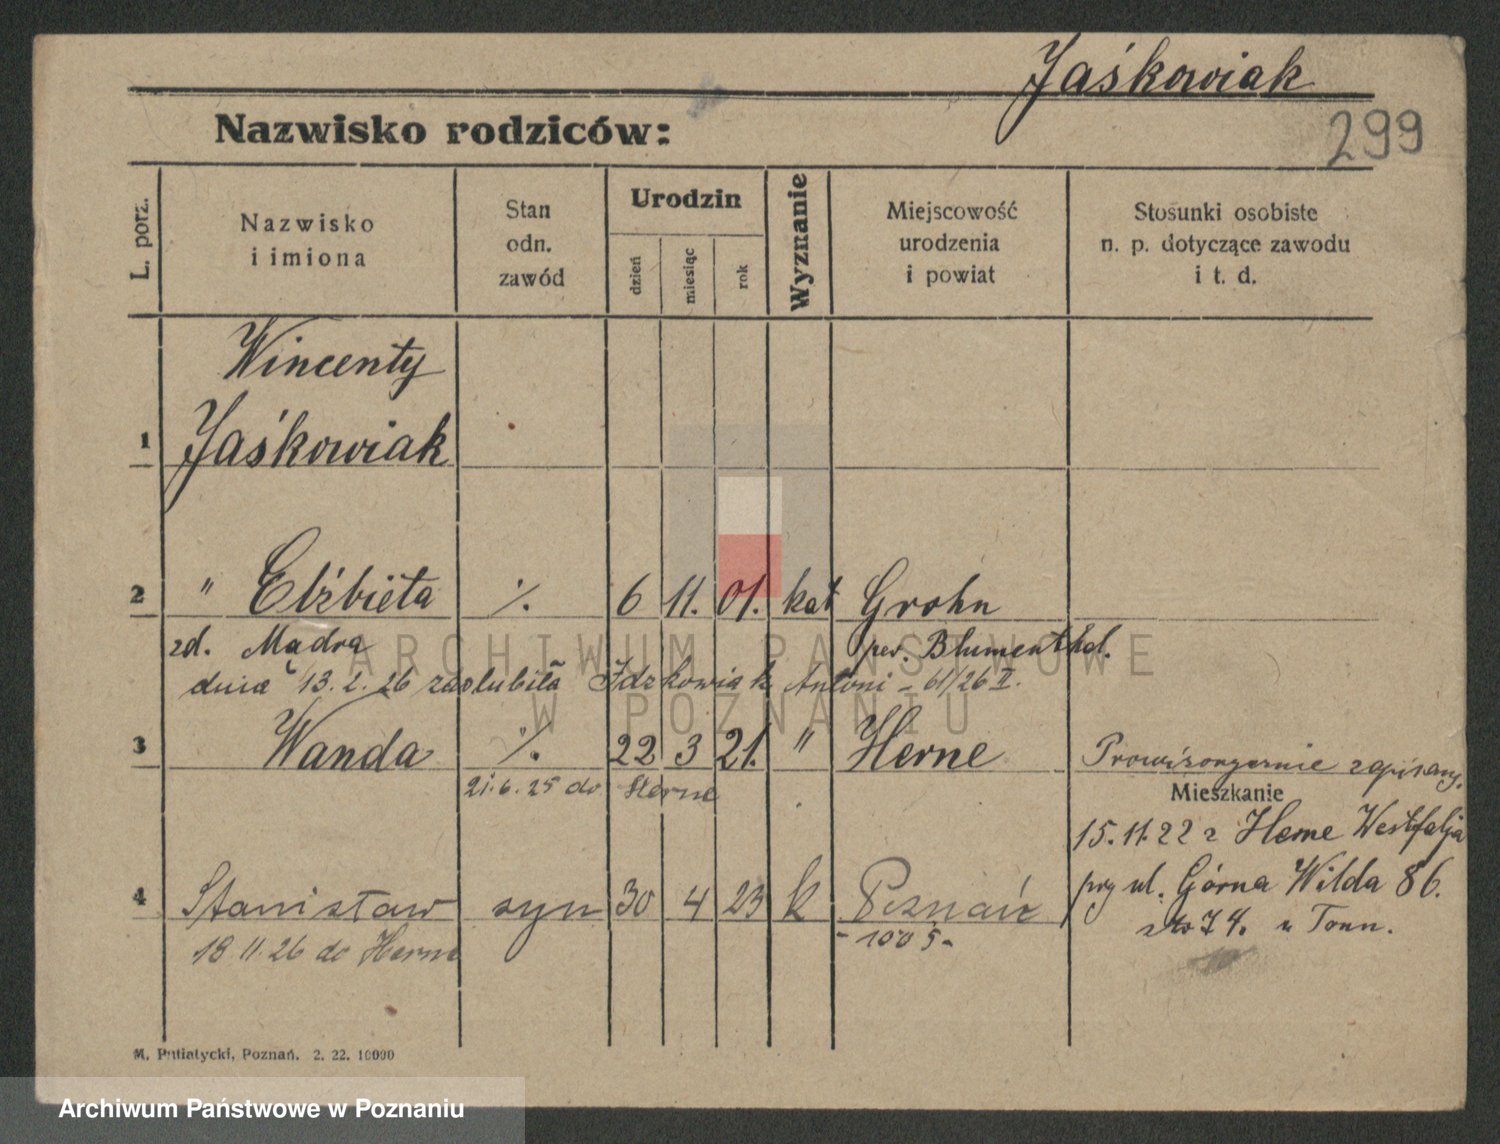 Jaśkowiak
299
Nazwisko rodziców:
L. porz.
Nazwisko
i imiona
Stan
odn.
zawód
Urodzin
dzień
miesiąc
rok
Wyznanie
Miejscowość
urodzenia
i powiat
Stosunki osobiste
n. p. dotyczące zawodu
i t. d.
Wincenty
1 Jaśkowiak
2 " Elżbieta ./. 6 11. 01. kat Grohn
zd. Mądra pow. Blumenthal.
dnia 13. 2. 26 zaślubiła Idzkowiak Antoni - 61/26 II.
3 Wanda ./. 22 3 21. " Herne
21.6.25 do Herne
Prowizorycznie zapisany.
Mieszkanie
15.11.22 z Herne Westfalja
przy ul. Górna Wilda 86.
4 Stanisław syn 30 4 23 k Poznań
18 11.26 do Herne
- 1005 -
74. u Tonn.
M. Putiatycki, Poznań. 2. 22. 10000
ARCHIWUM PAŃSTWOWE
W POZNANIU
Archiwum Państwowe w Poznaniu